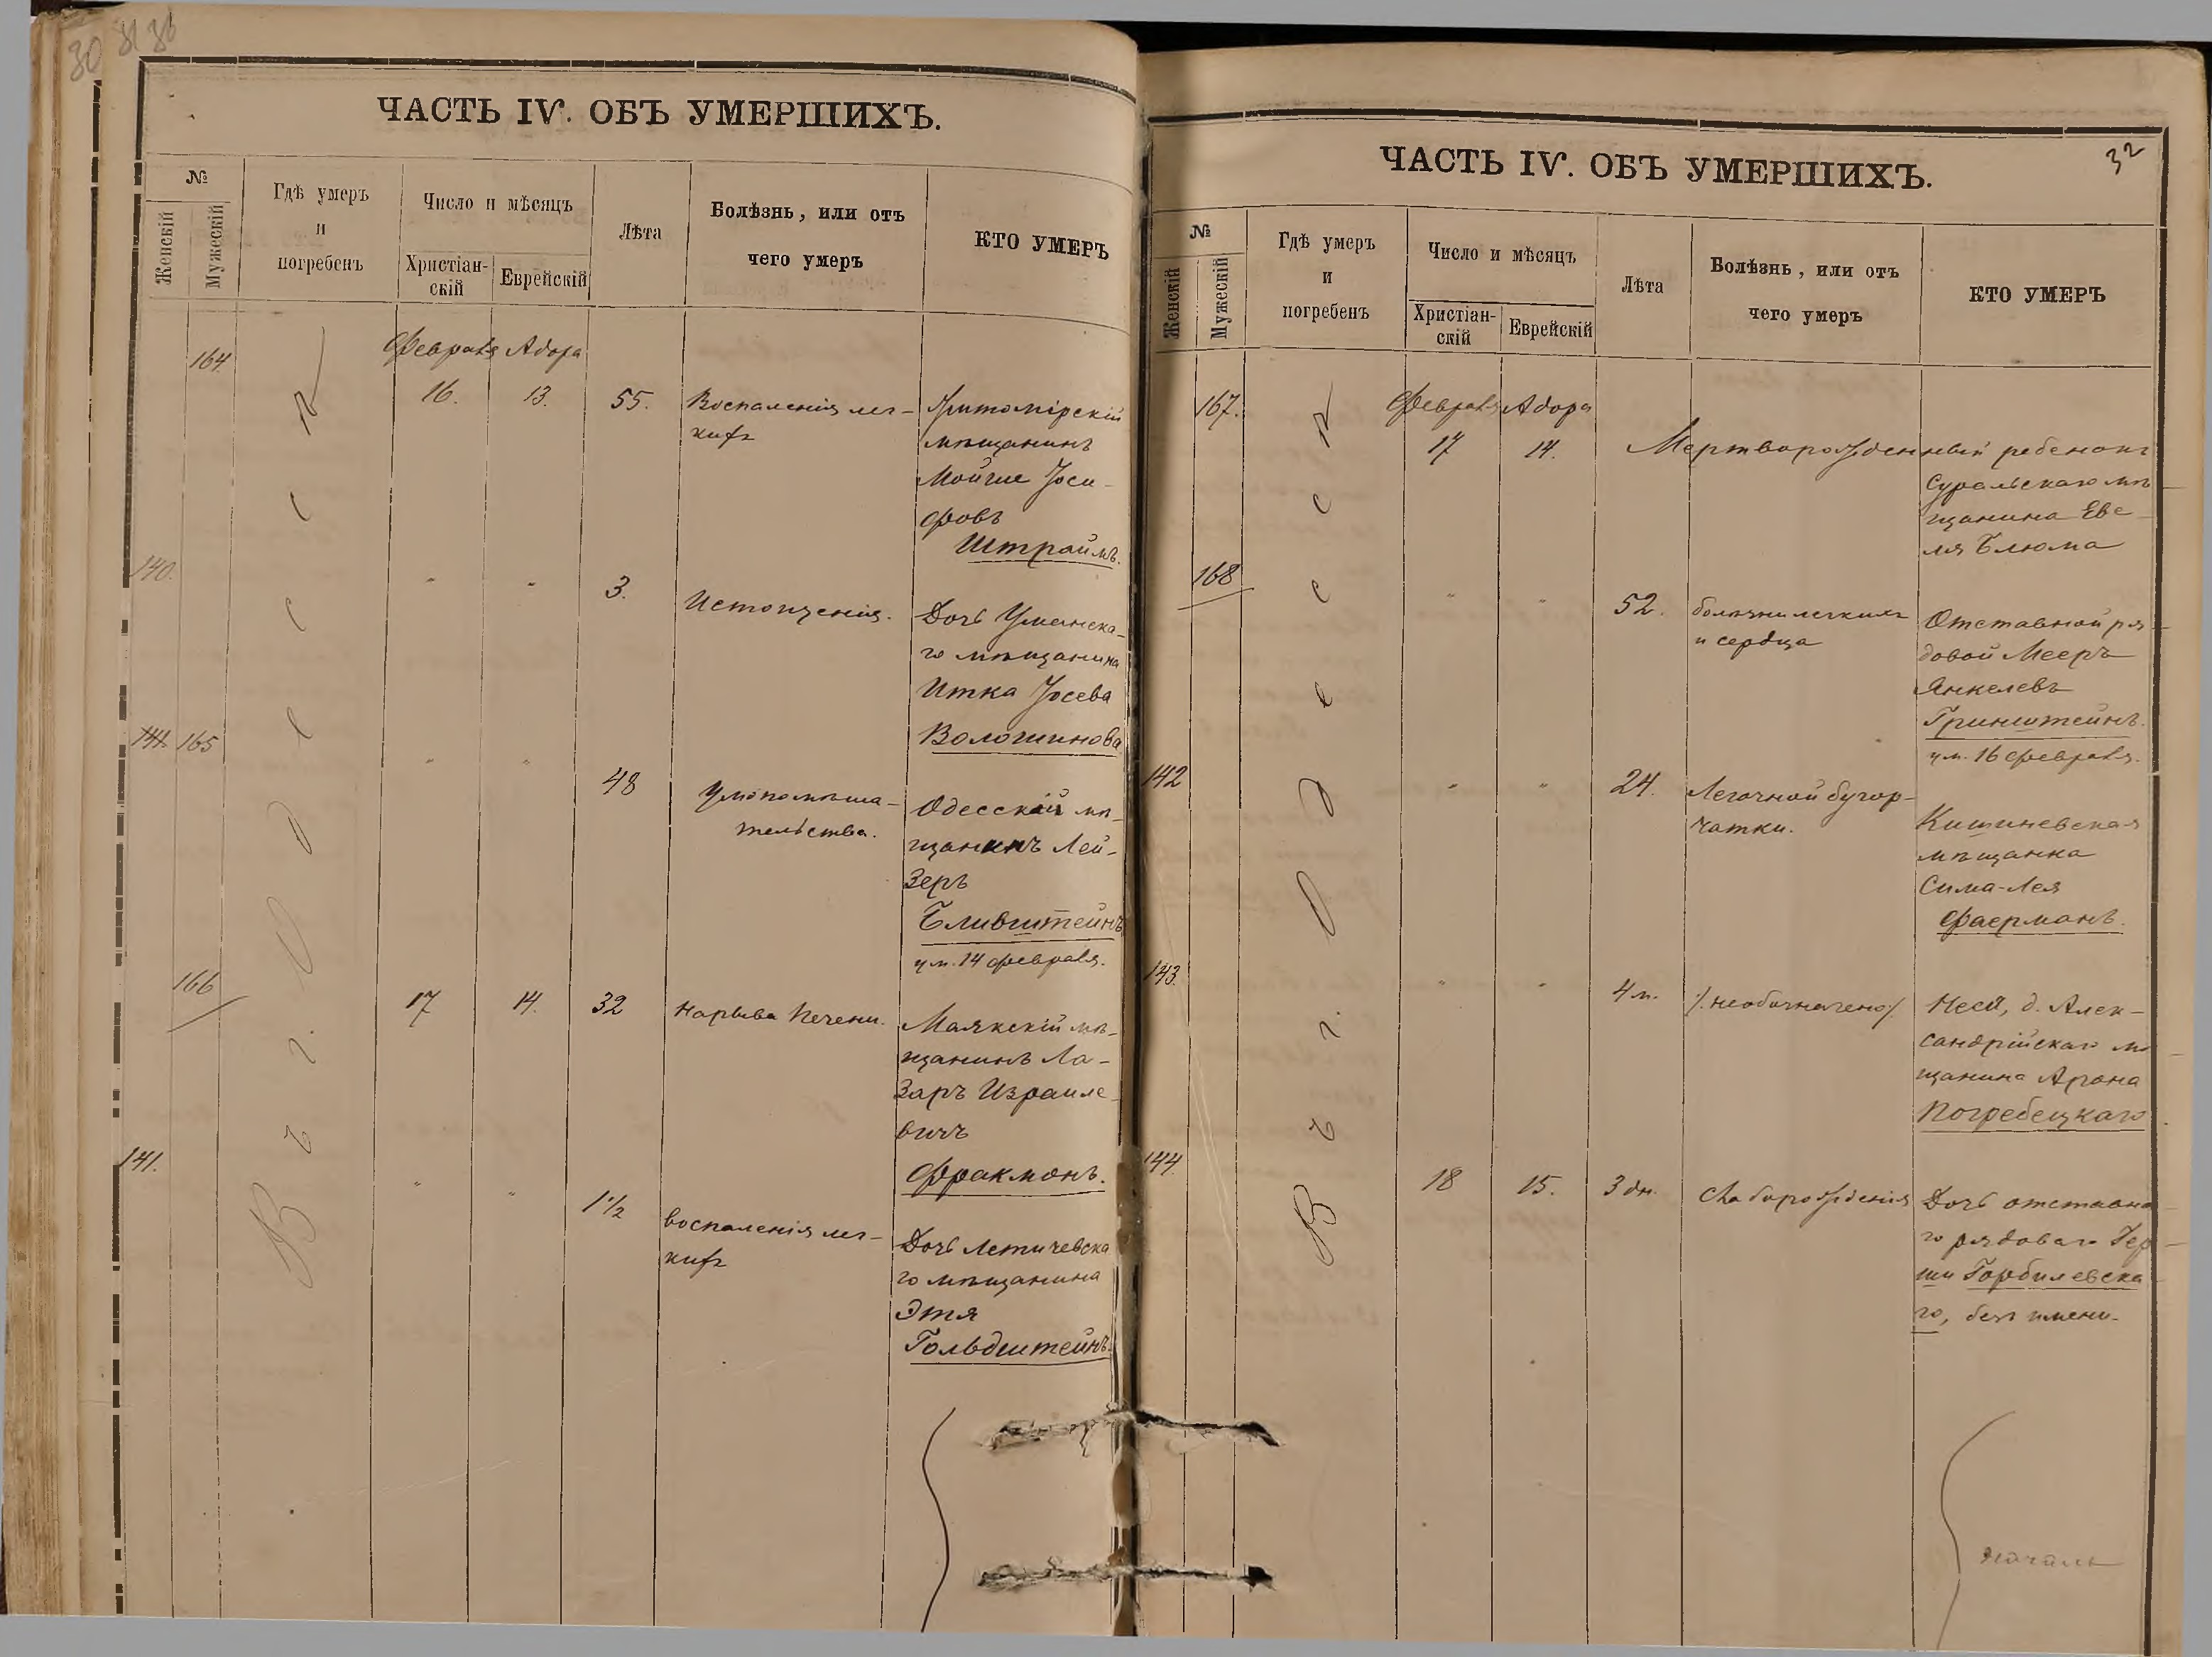 30 31 36
ЧАСТЬ IV. ОБЪ УМЕРШИХЪ.
№
Женскій
Мужескій
Гдѣ умеръ
и
погребенъ
Число и мѣсяцъ
Христіан-
скій
Еврейскій
Лѣта
Болѣзнь, или отъ
чего умеръ
КТО УМЕРЪ
В ъ г. О д е с с ѣ
164.
Февраля Адора
16. 13. 55.
Воспаленія лег-
кихъ
Житомірскій
мѣщанинъ
Мойше Іоси-
фовъ
Штраймъ.
140.
" " 3. Истощенія.
Дочь Уманска-
го мѣщанина
Итка Іосева
Волошинова
141. 165
" " 48
Умопомѣша-
тельства.
Одесскій мѣ-
щанинъ Лей-
зеръ
Бливштейнъ
ум. 14 февраля.
166
17 14. 32 Нарыва печени.
Маякскій мѣ-
щанинъ Ла-
заръ Израиле-
вичъ
Фракманъ.
141.
" " 1 1/2
воспаленія лег-
кихъ
Дочь Летичевска
го мѣщанина
Этя
Гольдштейнъ.
32
ЧАСТЬ IV. ОБЪ УМЕРШИХЪ.
№
Женскій
Мужескій
Гдѣ умеръ
и
погребенъ
Число и мѣсяцъ
Христіан-
скій
Еврейскій
Лѣта
Болѣзнь, или отъ
чего умеръ
КТО УМЕРЪ
В ъ г. О д е с с ѣ
167.
Февраля Адора
17 14. Мертворожденный ребенокъ
мѣ
щанина Еве-
ля Блюма
168
" " 52. болѣзни легкихъ
и сердца
Отставной ря
довой Мееръ
Янкелевъ
Гринштейнъ.
ум. 16 февраля.
142
" " 24. Легочной бугор-
чатки.
Кишиневская
мѣщанка
Сима-Лея
Фаерманъ.
143.
" " 4 м. /.необозначено/.
Неся, д. Алек-
сандрійскаго мѣ
щанина Арона
Погребецкаго
144.
18 15. 3 дн. Слаборожденія
Дочь отставна
го рядоваго Гер
ши Горбилевска
го, безъ имени.